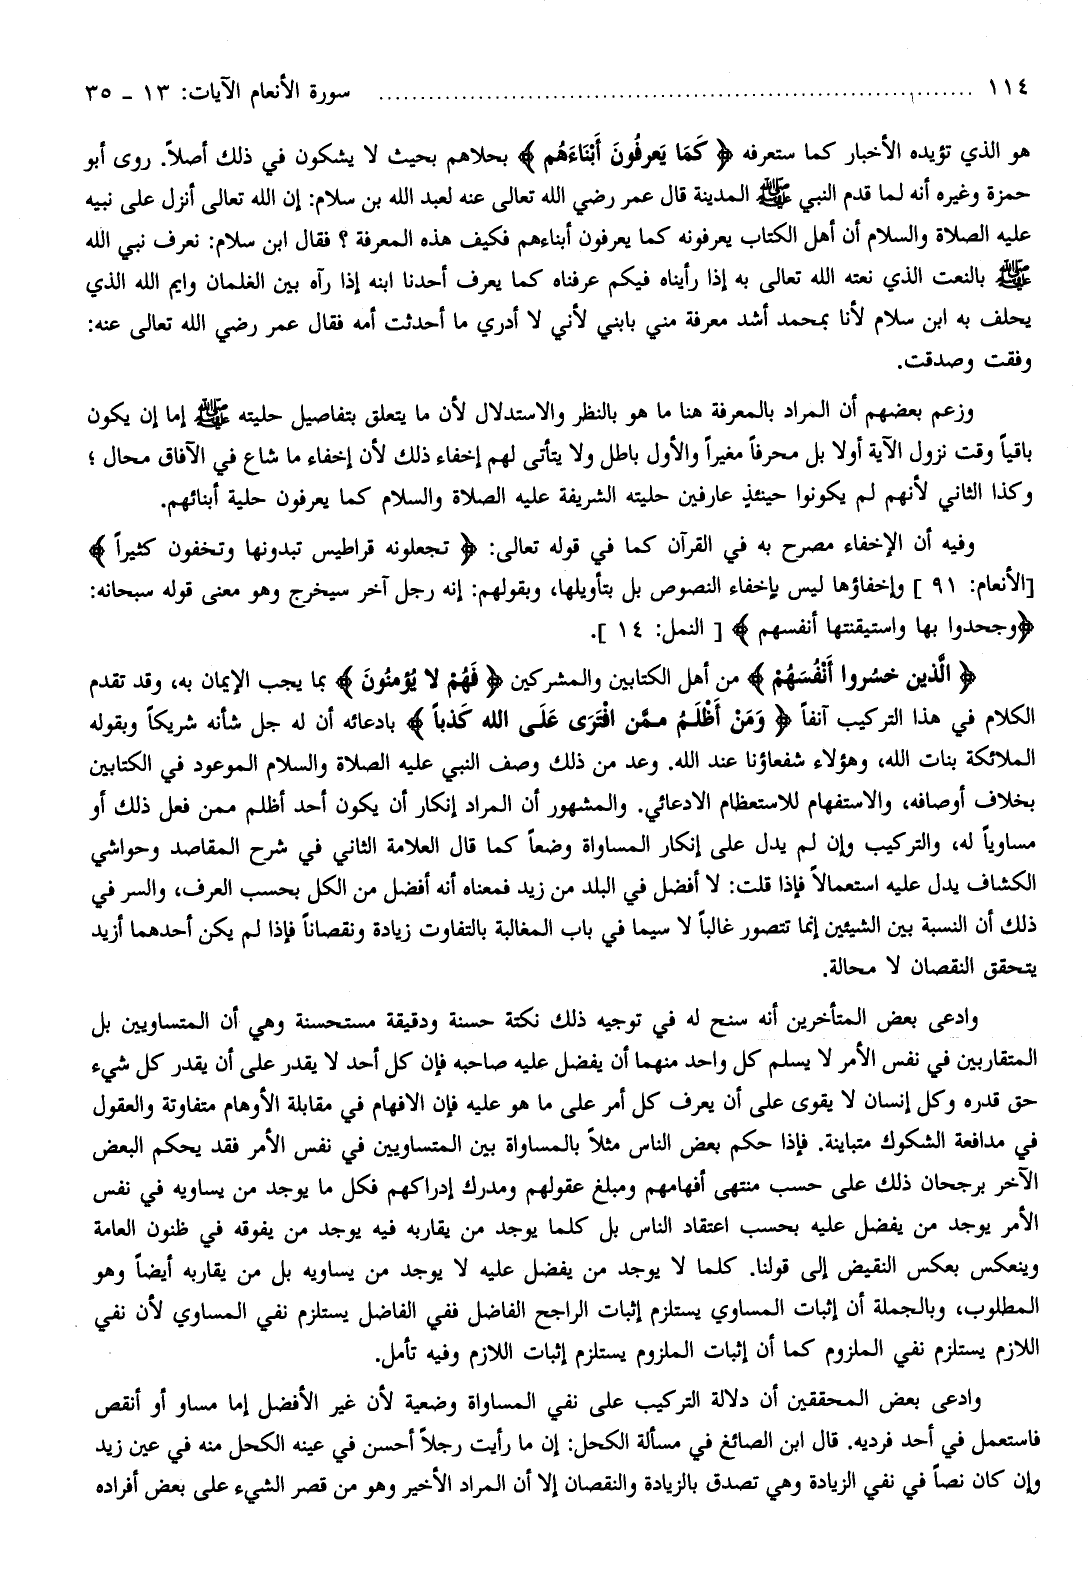 ١١٤ ........................................ سورة الأنعام الآيات: ١٣ ـ ٣٥
هو الذي تؤيده الأخبار كما ستعرفه ﴿ كَمَا يَعرِفُونَ أَبْنَاءَهُم ﴾ بحلاهم بحيث لا يشكون في ذلك أصلاً. روى أبو
حمزة وغيره أنه لما قدم النبي ﷺ المدينة قال عمر رضي الله تعالى عنه لعبد الله بن سلام: إن الله تعالى أنزل على نبيه
عليه الصلاة والسلام أن أهل الكتاب يعرفونه كما يعرفون أبناءهم فكيف هذه المعرفة ؟ فقال ابن سلام: نعرف نبي الله
ﷺ بالنعت الذي نعته الله تعالى به إذا رأيناه فيكم عرفناه كما يعرف أحدنا ابنه إذا رآه بين الغلمان وايم الله الذي
يحلف به ابن سلام لأنا بمحمد أشد معرفة مني بابني لأني لا أدري ما أحدثت أمه فقال عمر رضي الله تعالى عنه:
وفقت وصدقت.
وزعم بعضهم أن المراد بالمعرفة هنا ما هو بالنظر والاستدلال لأن ما يتعلق بتفاصيل حليته ﷺ إما إن يكون
باقياً وقت نزول الآية أولا بل محرفاً مغيراً والأول باطل ولا يتأتى لهم إخفاء ذلك لأن إخفاء ما شاع في الآفاق محال ؛
وكذا الثاني لأنهم لم يكونوا حينئذٍ عارفين حليته الشريفة عليه الصلاة والسلام كما يعرفون حلية أبنائهم.
وفيه أن الإخفاء مصرح به في القرآن كما في قوله تعالى: ﴿ تجعلونه قراطيس تبدونها وتخفون كثيراً ﴾
[الأنعام: ٩١ ] وإخفاؤها ليس بإخفاء النصوص بل بتأويلها، وبقولهم: إنه رجل آخر سيخرج وهو معنى قوله سبحانه:
﴿وجحدوا بها واستيقنتها أنفسهم ﴾ [ النمل: ١٤ ].
﴿ الَّذين خسُروا أَنْفُسَهُمْ ﴾ من أهل الكتابين والمشركين ﴿ فَهُمْ لا يُؤمنُونَ ﴾ بما يجب الإيمان به، وقد تقدم
الكلام في هذا التركيب آنفاً ﴿ وَمَنْ أَظْلَمُ ممَّن افْتَرَى عَلَى الله كَذباً ﴾ بادعائه أن له جل شأنه شريكاً وبقوله
الملائكة بنات الله، وهؤلاء شفعاؤنا عند الله. وعد من ذلك وصف النبي عليه الصلاة والسلام الموعود في الكتابين
بخلاف أوصافه، والاستفهام للاستعظام الادعائي. والمشهور أن المراد إنكار أن يكون أحد أظلم ممن فعل ذلك أو
مساوياً له، والتركيب وإن لم يدل على إنكار المساواة وضعاً كما قال العلامة الثاني في شرح المقاصد وحواشي
الكشاف يدل عليه استعمالاً فإذا قلت: لا أفضل في البلد من زيد فمعناه أنه أفضل من الكل بحسب العرف، والسر في
ذلك أن النسبة بين الشيئين إنما تتصور غالباً لا سيما في باب المغالبة بالتفاوت زيادة ونقصاناً فإذا لم يكن أحدهما أزيد
يتحقق النقصان لا محالة.
وادعى بعض المتأخرين أنه سنح له في توجيه ذلك نكتة حسنة ودقيقة مستحسنة وهي أن المتساويين بل
المتقاربين في نفس الأمر لا يسلم كل واحد منهما أن يفضل عليه صاحبه فإن كل أحد لا يقدر على أن يقدر كل شيء
حق قدره وكل إنسان لا يقوى على أن يعرف كل أمر على ما هو عليه فإن الافهام في مقابلة الأوهام متفاوتة والعقول
في مدافعة الشكوك متباينة. فإذا حكم بعض الناس مثلاً بالمساواة بين المتساويين في نفس الأمر فقد يحكم البعض
الآخر برجحان ذلك على حسب منتهى أفهامهم ومبلغ عقولهم ومدرك إدراكهم فكل ما يوجد من يساويه في نفس
الأمر يوجد من يفضل عليه بحسب اعتقاد الناس بل كلما يوجد من يقاربه فيه يوجد من يفوقه في ظنون العامة
وينعكس بعكس النقيض إلى قولنا. كلما لا يوجد من يفضل عليه لا يوجد من يساويه بل من يقاربه أيضاً وهو
المطلوب، وبالجملة أن إثبات المساوي يستلزم إثبات الراجح الفاضل ففي الفاضل يستلزم نفي المساوي لأن نفي
اللازم يستلزم نفي الملزوم كما أن إثبات الملزوم يستلزم إثبات اللازم وفيه تأمل.
وادعى بعض المحققين أن دلالة التركيب على نفي المساواة وضعية لأن غير الأفضل إما مساو أو أنقص
فاستعمل في أحد فرديه. قال ابن الصائغ في مسألة الكحل: إن ما رأيت رجلاً أحسن في عينه الكحل منه في عين زيد
وإن كان نصاً في نفي الزيادة وهي تصدق بالزيادة والنقصان إلا أن المراد الأخير وهو من قصر الشيء على بعض أفراده